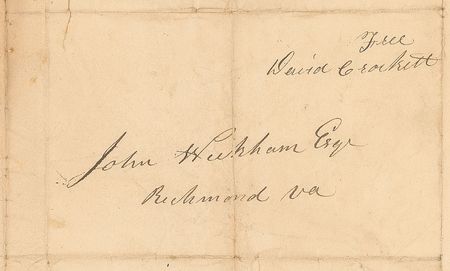 Free
David Crockett
John Wickham Esqr
Richmond va